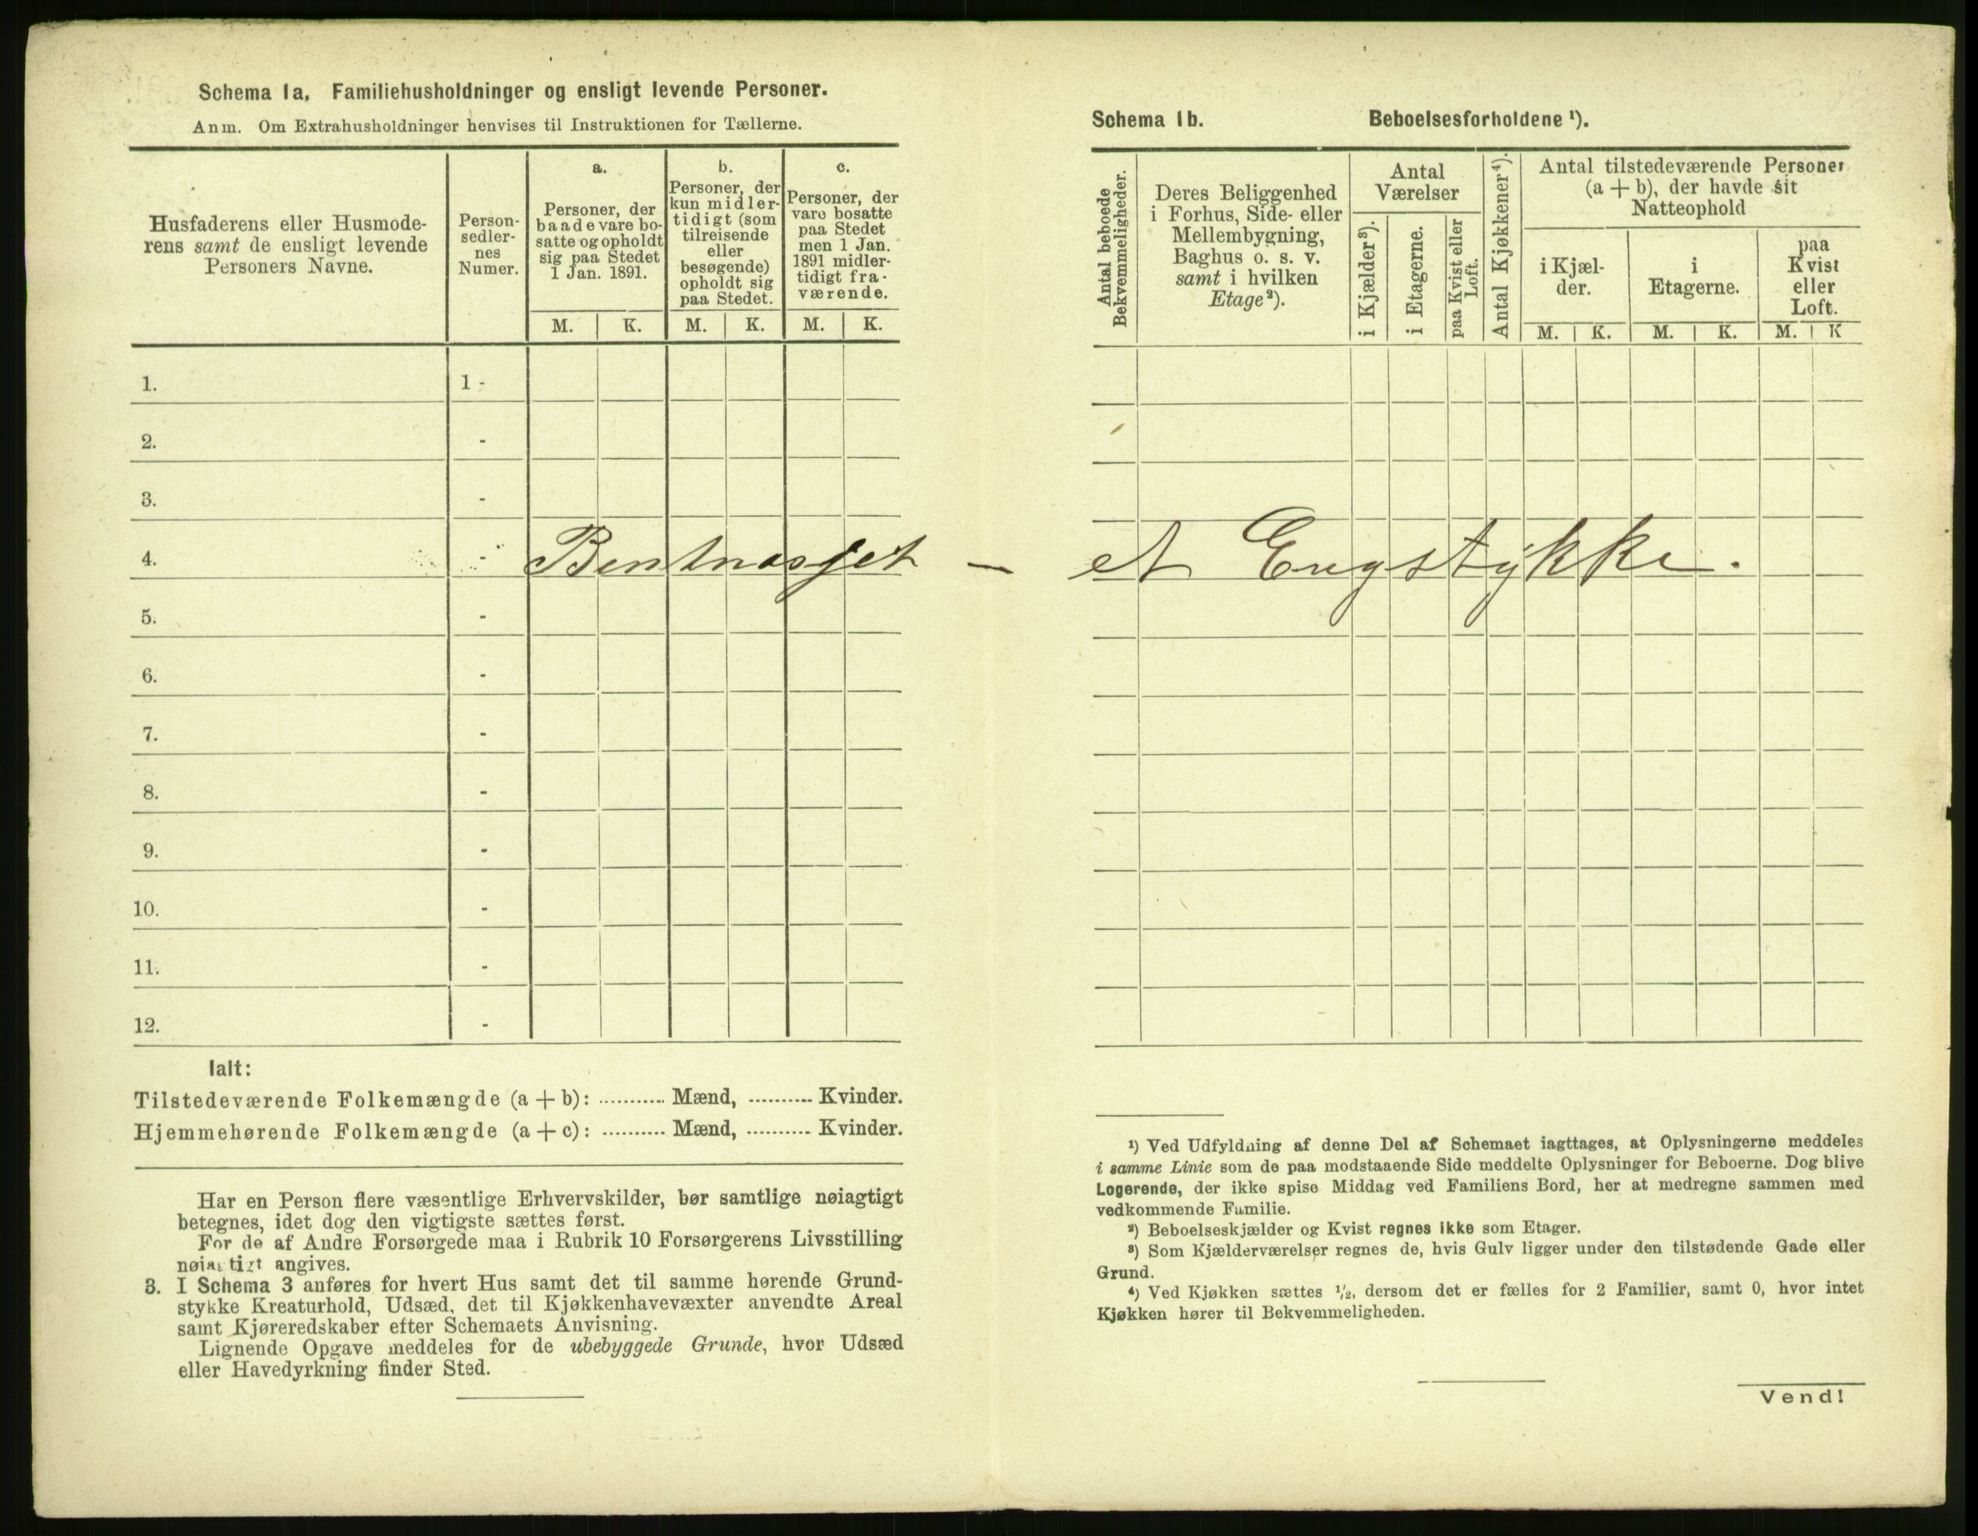 Schema 1a. Familiehusholdninger og ensligt levende Personer.
Anm. Om Extrahusholdninger henvises til Instruktionen for Tællerne.
Husfaderens eller Husmode-
rens samt de ensligt levende
Personers Navne.
Person-
sedler-
nes
Numer.
a.
Personer, der
baade vare bo-
satte og opholdt
sig paa Stedet
1 Jan. 1891.
b.
Personer, der
kun midler-
tidigt (som
tilreisende
eller
besøgende)
opholdt sig
paa Stedet.
c.
Personer, der
vare bosatte
paa Stedet
men 1 Jan.
1891 midler-
tidigt fra-
værende.
M. K. M. K. M. K.
1. 1 -
2. -
3. -
4. - Bentnesset - et Engstykke.
5. -
6. -
7. -
8. -
9. -
10. -
11. -
12. -
Ialt:
Tilstedeværende Folkemængde (a + b): ........... Mænd, ........... Kvinder.
Hjemmehørende Folkemængde (a + c): ........... Mænd, ........... Kvinder.
Har en Person flere væsentlige Erhvervskilder, bør samtlige nøiagtigt
betegnes, idet dog den vigtigste sættes først.
For de af Andre Forsørgede maa i Rubrik 10 Forsørgerens Livsstilling
nøiagtigt angives.
3. I Schema 3 anføres for hvert Hus samt det til samme hørende Grund-
stykke Kreaturhold, Udsæd, det til Kjøkkenhavevæxter anvendte Areal
samt Kjøreredskaber efter Schemaets Anvisning.
Lignende Opgave meddeles for de ubebyggede Grunde, hvor Udsæd
eller Havedyrkning finder Sted.
Schema 1b. Beboelsesforholdene ¹).
Antal beboede
Bekvemmeligheder.
Deres Beliggenhed
i Forhus, Side- eller
Mellembygning,
Baghus o. s. v.
samt i hvilken
Etage²).
Antal
Værelser
i Kjælder³).
i Etagerne.
paa Kvist eller
Loft.
Antal Kjøkkener⁴).
Antal tilstedeværende Personer
(a + b), der havde sit
Natteophold
i Kjæl-
der.
i
Etagerne.
paa
Kvist
eller
Loft.
M. K. M. K. M. K
¹) Ved Udfyldning af denne Del af Schemaet iagttages, at Oplysningerne meddeles
i samme Linie som de paa modstaaende Side meddelte Oplysninger for Beboerne. Dog blive
Logerende, der ikke spise Middag ved Familiens Bord, her at medregne sammen med
vedkommende Familie.
²) Beboelseskjælder og Kvist regnes ikke som Etager.
³) Som Kjælderværelser regnes de, hvis Gulv ligger under den tilstødende Gade eller
Grund.
⁴) Ved Kjøkken sættes ½, dersom det er fælles for 2 Familier, samt 0, hvor intet
Kjøkken hører til Bekvemmeligheden.
Vend!